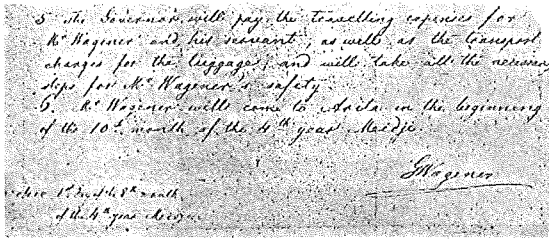 5 The Governor will pay the travelling expenses for
Mr Wagener and his servant, as well as the transport
charges for the luggage, and will take all the necessary
steps for Mr Wagener's safety.
6. Mr Wagener will come to Arita in the beginning
of the 10th month of the 4th year Meidji.
GWagener
1st day of the 8th month
of the 4th year Meidji.